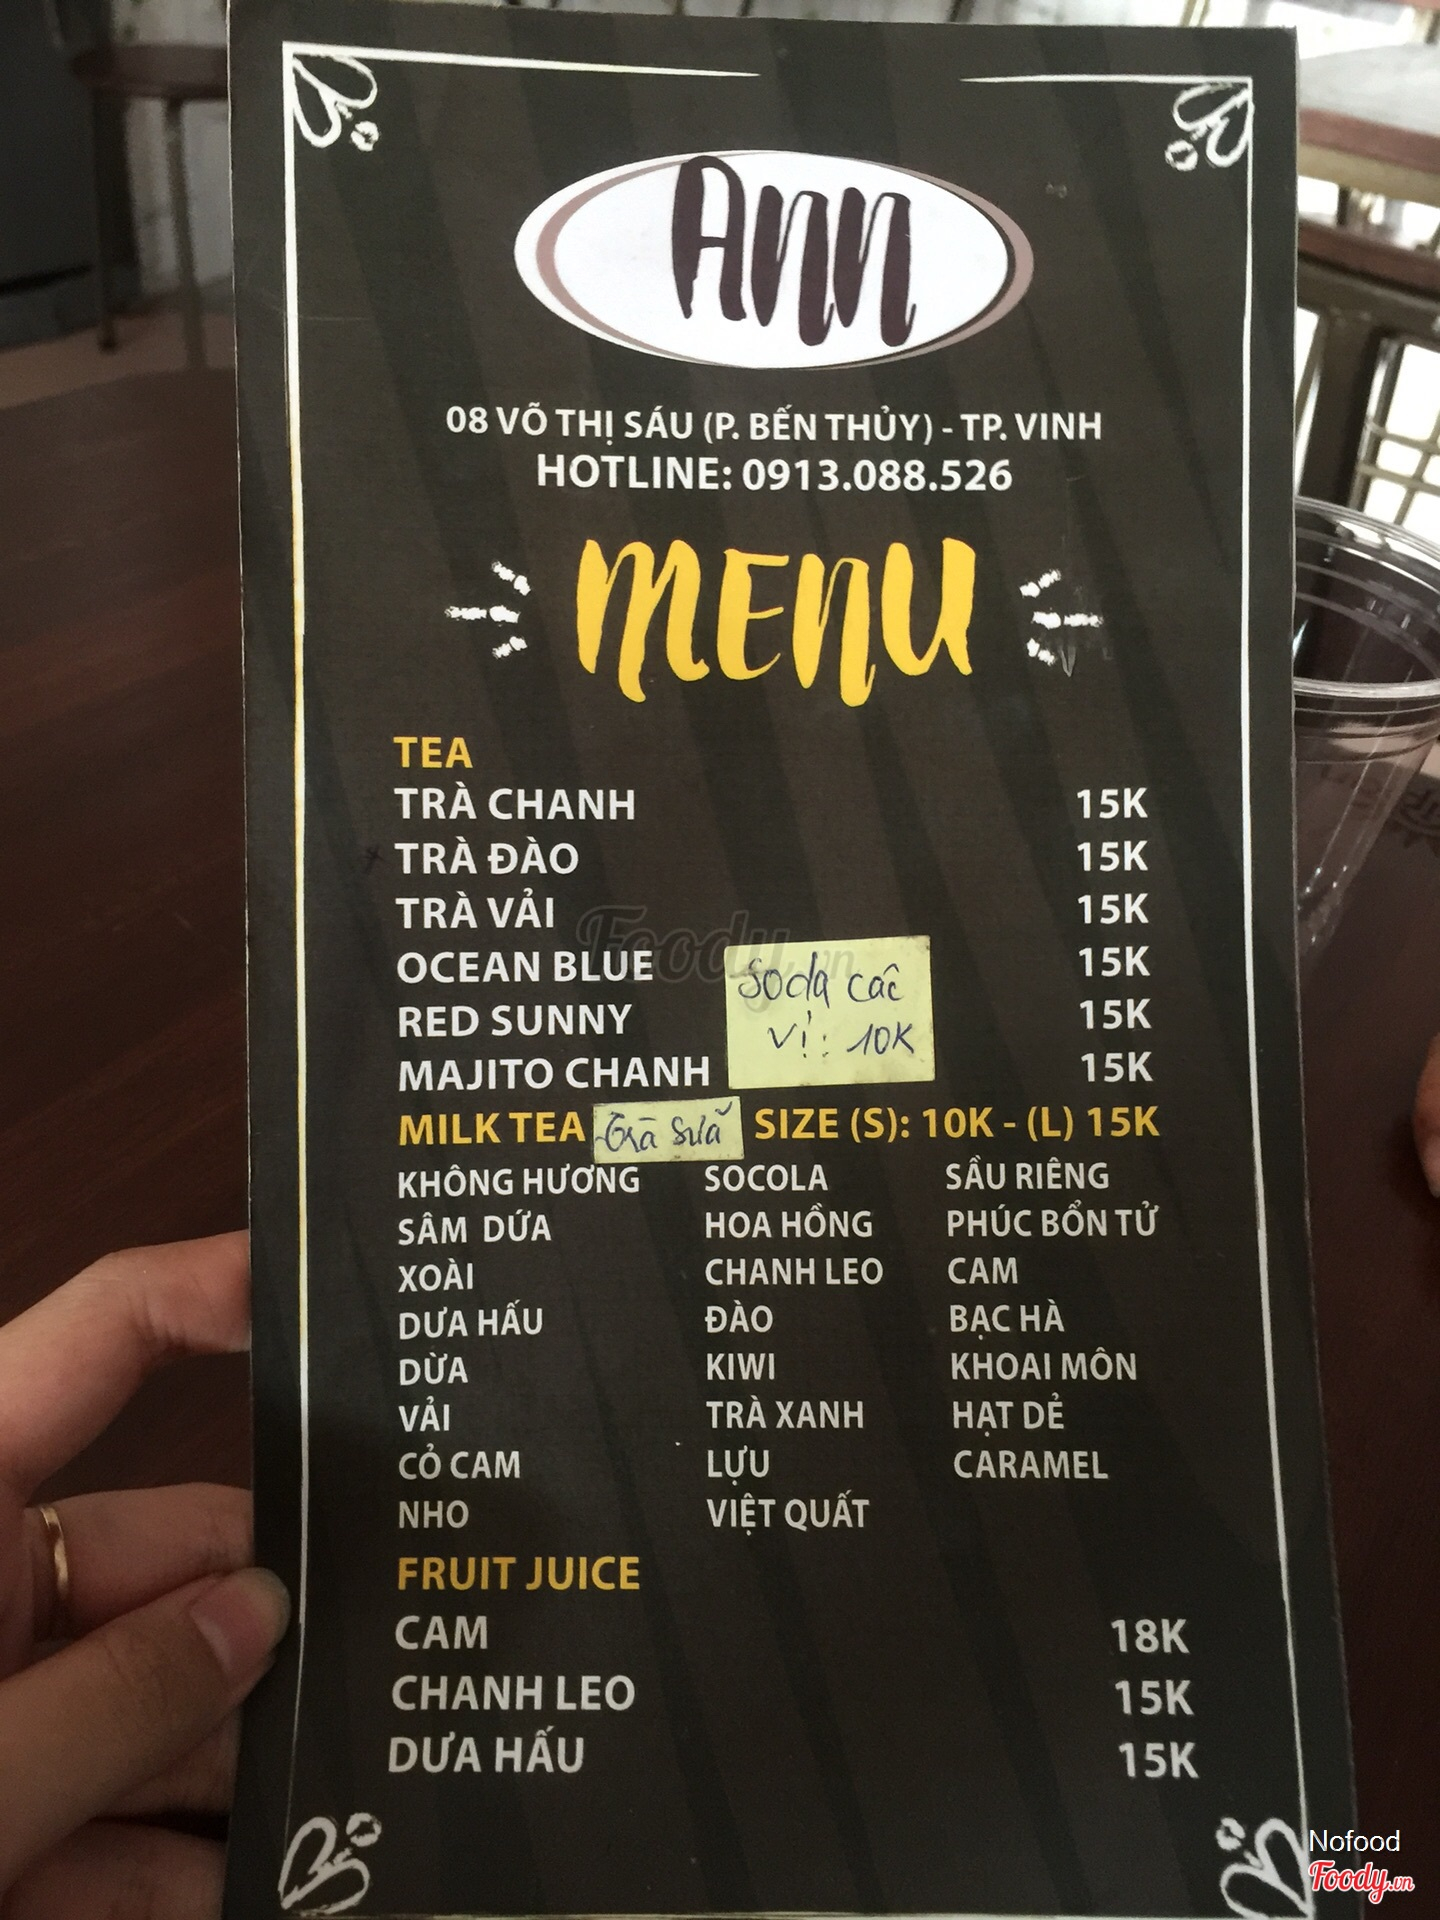 Ann
08 VÕ THỊ SÁU (P. BẾN THỦY) - TP. VINH
HOTLINE: 0913.088.526
MENU
TEA
TRÀ CHANH 15K
TRÀ ĐÀO 15K
TRÀ VẢI 15K
OCEAN BLUE 15K
RED SUNNY 15K
MAJITO CHANH 15K
Soda các
vị: 10K
MILK TEA Trà sữa SIZE (S): 10K - (L) 15K
KHÔNG HƯƠNG SOCOLA SẦU RIÊNG
SÂM DỨA HOA HỒNG PHÚC BỔN TỬ
XOÀI CHANH LEO CAM
DƯA HẤU ĐÀO BẠC HÀ
DỪA KIWI KHOAI MÔN
VẢI TRÀ XANH HẠT DẺ
CỎ CAM LỰU CARAMEL
NHO VIỆT QUẤT
FRUIT JUICE
CAM 18K
CHANH LEO 15K
DƯA HẤU 15K
Foody.vn
Nofood
Foody.vn